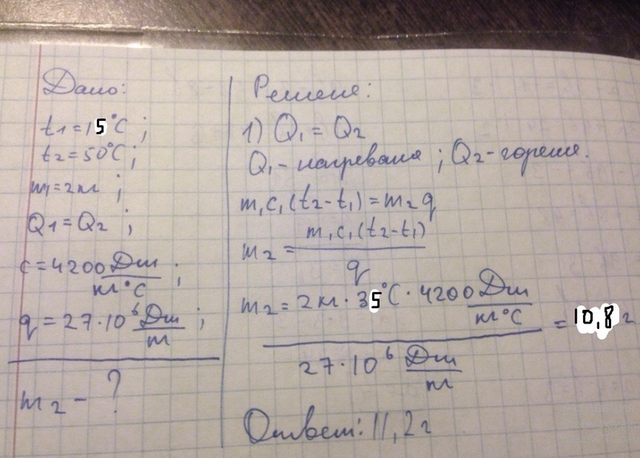 Дано:
t1=15°C;
t2=50°C;
m1=2кг;
Q1=Q2;
c=4200 Дж/кг°C;
q=27·10⁶ Дж/кг;
m2-?
Решение:
1) Q₁=Q₂
Q₁-нагревания; Q₂-горения.
m₁c₁(t₂-t₁)=m₂q
m₂= m₁c₁(t₂-t₁)/q
m₂=2кг·35°C·4200 Дж/кг°C / 27·10⁶ Дж/кг =10,8г
Ответ: 11,2г